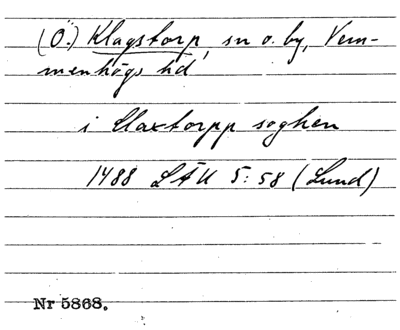 (Ö.) Klagstorp, sn o. by, Vem-
menhögs hd
i Claxtorpp soghen
1488 LÄU 5:58 (Lund)
Nr 5868.